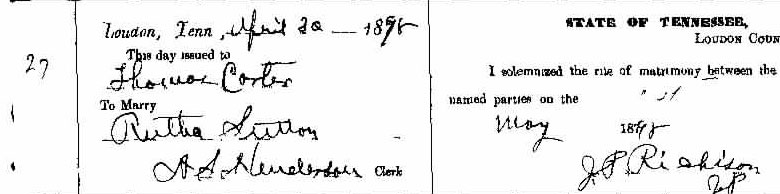 Loudon, Tenn, April 30 — 1898
27
This day issued to
Thomas Carter
To Marry
Rutha Sutton
A S Henderson Clerk
STATE OF TENNESSEE,
LOUDON COUN
I solemnized the rite of matrimony between the
named parties on the
May 1898
J.P. Richison
JP